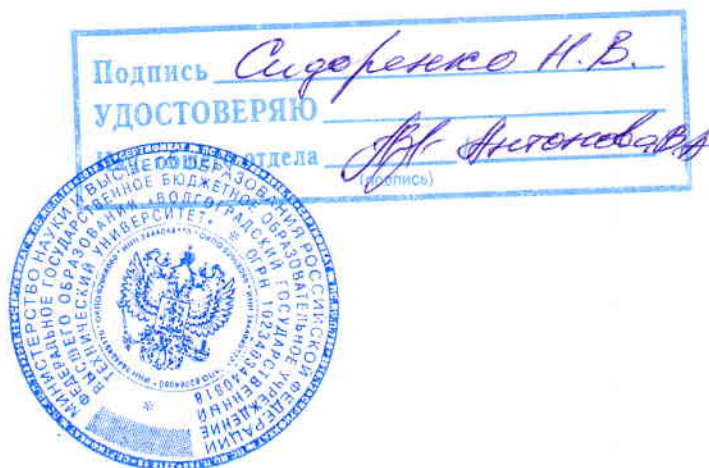 Подпись Сидоренко Н.В.
УДОСТОВЕРЯЮ
общего отдела Антонова В А
(подпись)
МИНИСТЕРСТВО НАУКИ И ВЫСШЕГО ОБРАЗОВАНИЯ РОССИЙСКОЙ ФЕДЕРАЦИИ
ФЕДЕРАЛЬНОЕ ГОСУДАРСТВЕННОЕ БЮДЖЕТНОЕ ОБРАЗОВАТЕЛЬНОЕ УЧРЕЖДЕНИЕ
ВЫСШЕГО ОБРАЗОВАНИЯ «ВОЛГОГРАДСКИЙ ГОСУДАРСТВЕННЫЙ
ТЕХНИЧЕСКИЙ УНИВЕРСИТЕТ» * ОГРН 1023403440818